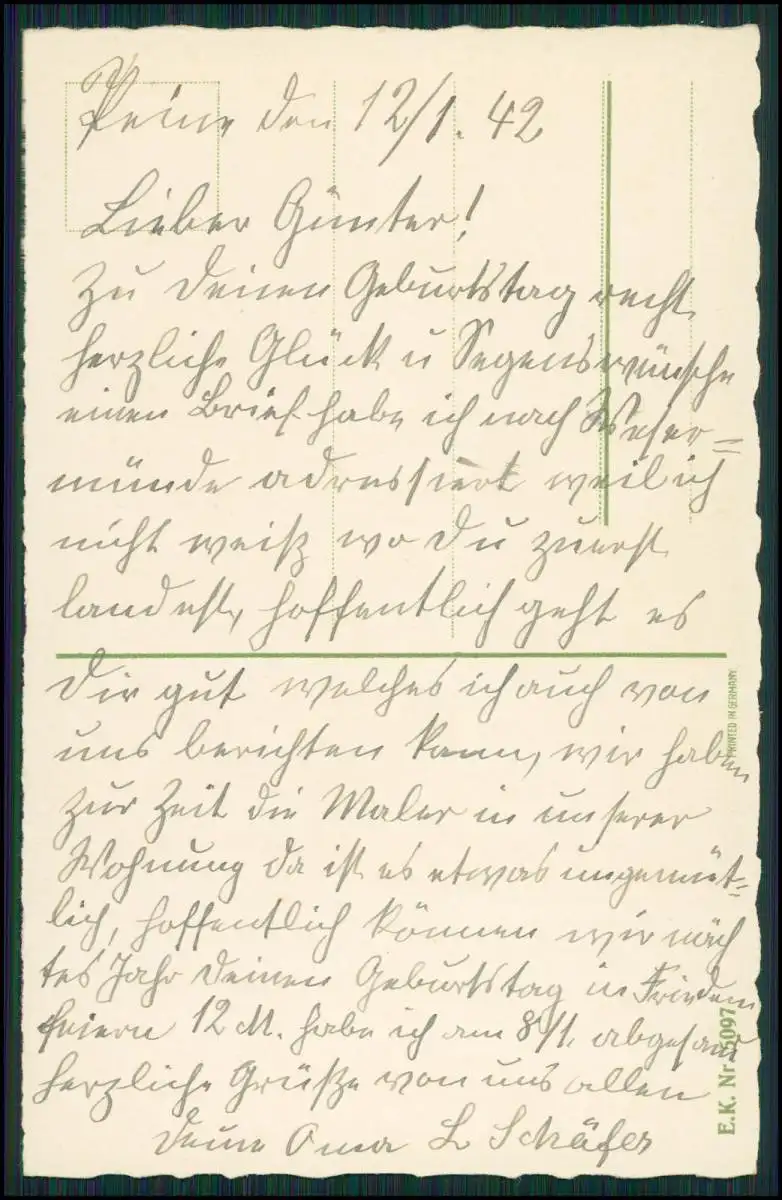 Peine den 12/1. 42
Lieber Günter!
Zu deinen Geburtstag recht
herzliche Glück u Segenswünsche
einen Brief habe ich nach Weser=
münde adressiert weil ich
nicht weiß wo Du zuerst
landest, hoffentlich geht es
Dir gut welches ich auch von
uns berichten kann, wir haben
zur Zeit die Maler in unserer
Wohnung da ist es etwas ungemüt=
lich, hoffentlich können wir näch
tes Jahr deinen Geburtstag in Frieden
feiern 12 M. habe ich am 8/1. abgesand
herzliche Grüße von uns allen
deine Oma L Schäfer
PRINTED IN GERMANY
E.K. Nr. 5097